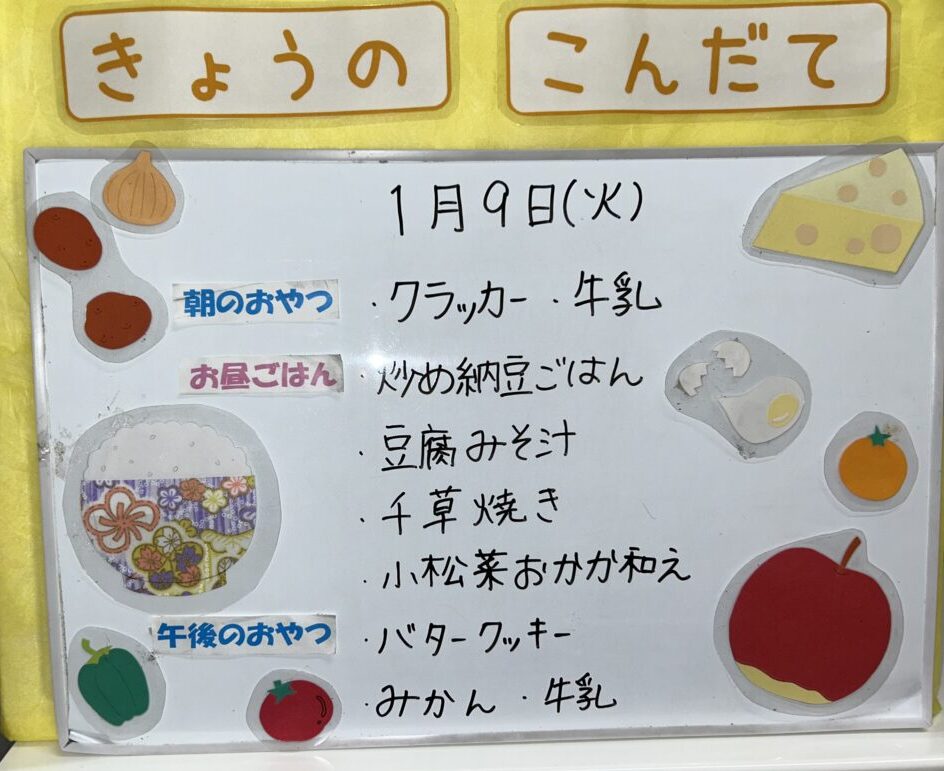 きょうの こんだて
1月9日(火)
朝のおやつ ・クラッカー ・牛乳
お昼ごはん ・炒め納豆ごはん
・豆腐みそ汁
・千草焼き
・小松菜おかか和え
午後のおやつ ・バタークッキー
・みかん ・牛乳